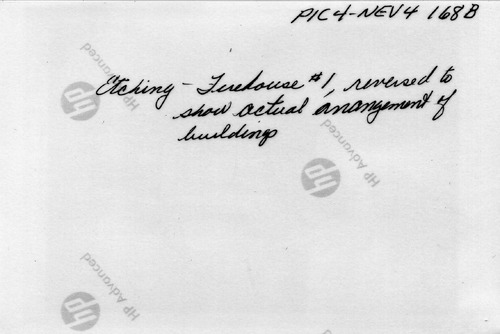 PIC 4-NEV 4 168B
Etching - Firehouse #1, reversed to
show actual arrangement of
buildings
hp HP Advanced
hp HP Advanced
hp HP Advanced
hp HP Advanced